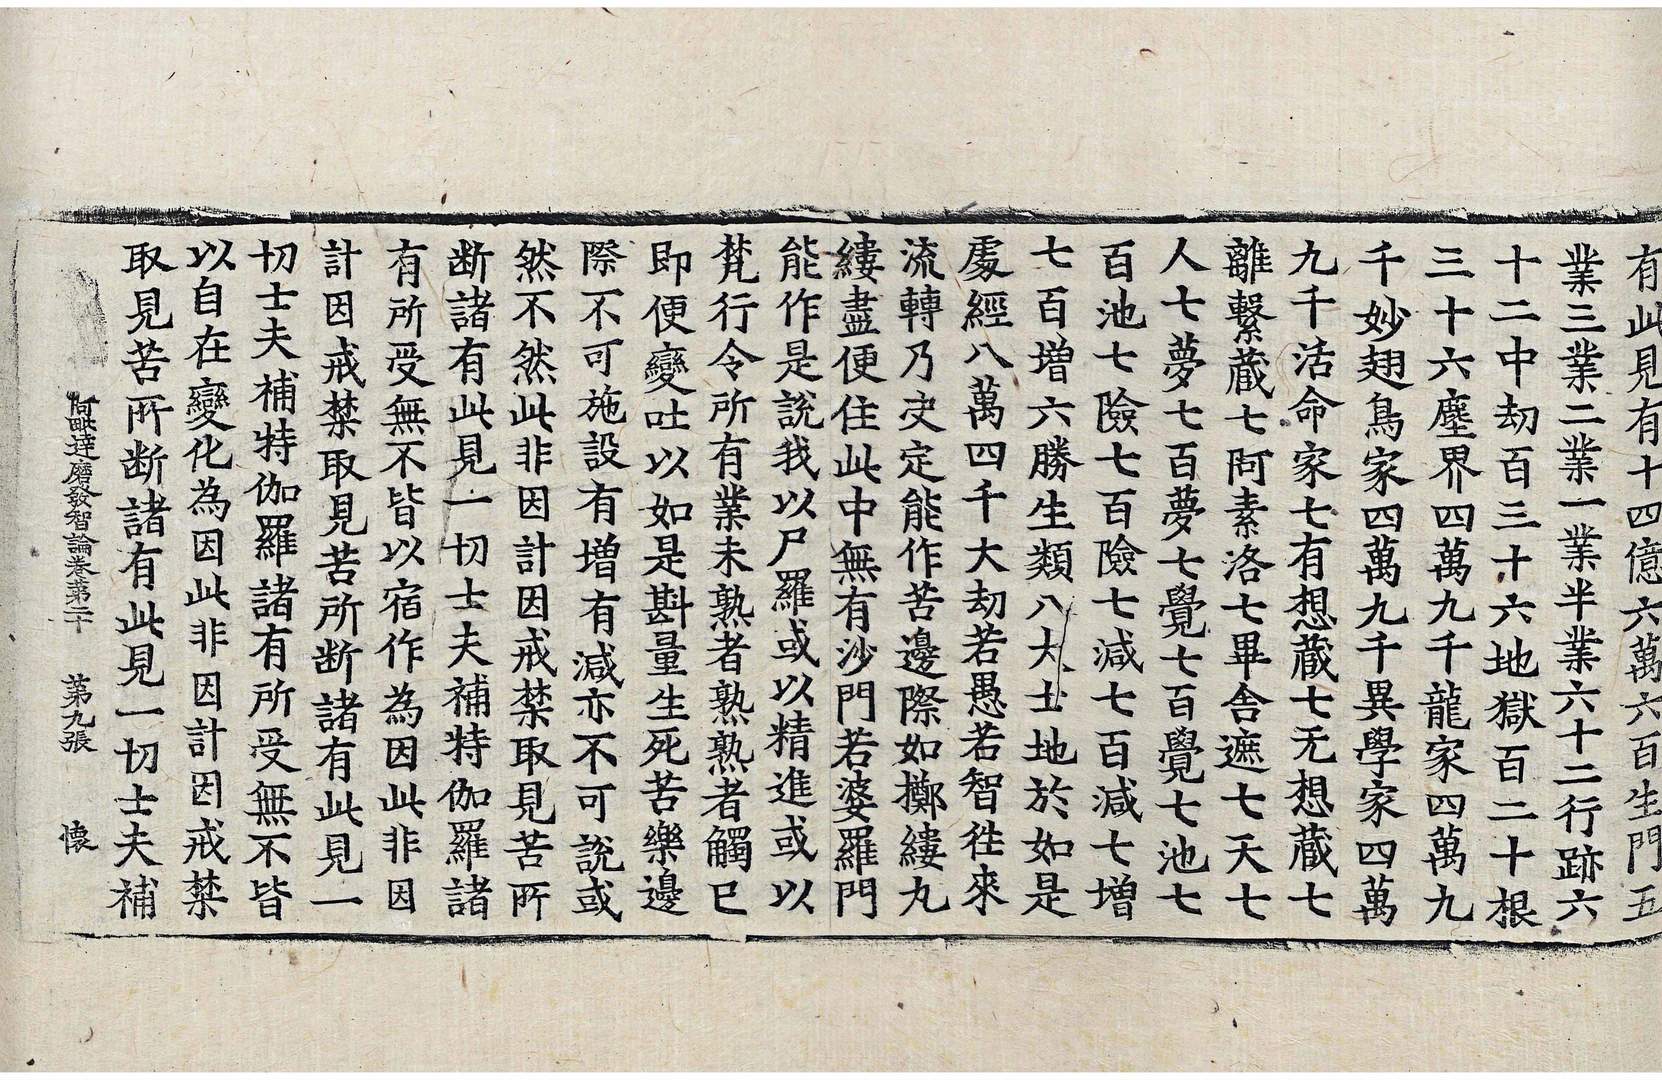 有此見有十四億六萬六百生門五
業三業二業一業半業六十二行跡六
十二中劫百三十六地獄百二十根
三十六塵界四萬九千龍家四萬九
千妙翅鳥家四萬九千異學家四萬
九千活命家七有想藏七无想藏七
離繫藏七阿素洛七畢舍遮七天七
人七夢七百夢七覺七百覺七池七
百池七險七百險七減七百減七增
七百增六勝生類八大士地於如是
處經八萬四千大劫若愚若智徃來
流轉乃決定能作苦邊際如擲縷丸
縷盡便住此中無有沙門若婆羅門
能作是說我以尸羅或以精進或以
梵行令所有業未熟者熟熟者觸已
即便變吐以如是斟量生死苦樂邊
際不可施設有增有減亦不可說或
然不然此非因計因戒禁取見苦所
断諸有此見一切士夫補特伽羅諸
有所受無不皆以宿作為因此非因
計因戒禁取見苦所断諸有此見一
切士夫補特伽羅諸有所受無不皆
以自在變化為因此非因計因戒禁
取見苦所断諸有此見一切士夫補
阿毗達磨發智論卷第二十 第九張 懷